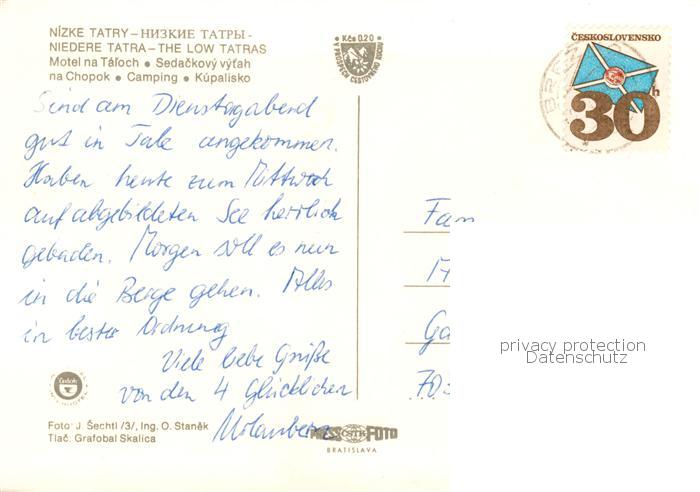 NÍZKE TATRY – НИЗКИЕ ТАТРЫ -
NIEDERE TATRA – THE LOW TATRAS
Motel na Táľoch • Sedačkový výťah
na Chopok • Camping • Kúpalisko
Kčs 0,20
ČESKOSLOVENSKO
30h
Sind am Dienstagabend
gut in Tale angekommen.
Haben heute zum Mittwoch
auf abgebildeten See herrlich
gebaden. Morgen soll es nun
in die Berge gehen. Alles
in bester Ordnung
Viele liebe Grüße
von den 4 Glücklichen
Fam
Ga
70
privacy protection
Datenschutz
Foto: J. Šechtl /3/, Ing. O. Staněk
Tlač. Grafobal Skalica
PRESSFOTO
ČSTK
BRATISLAVA